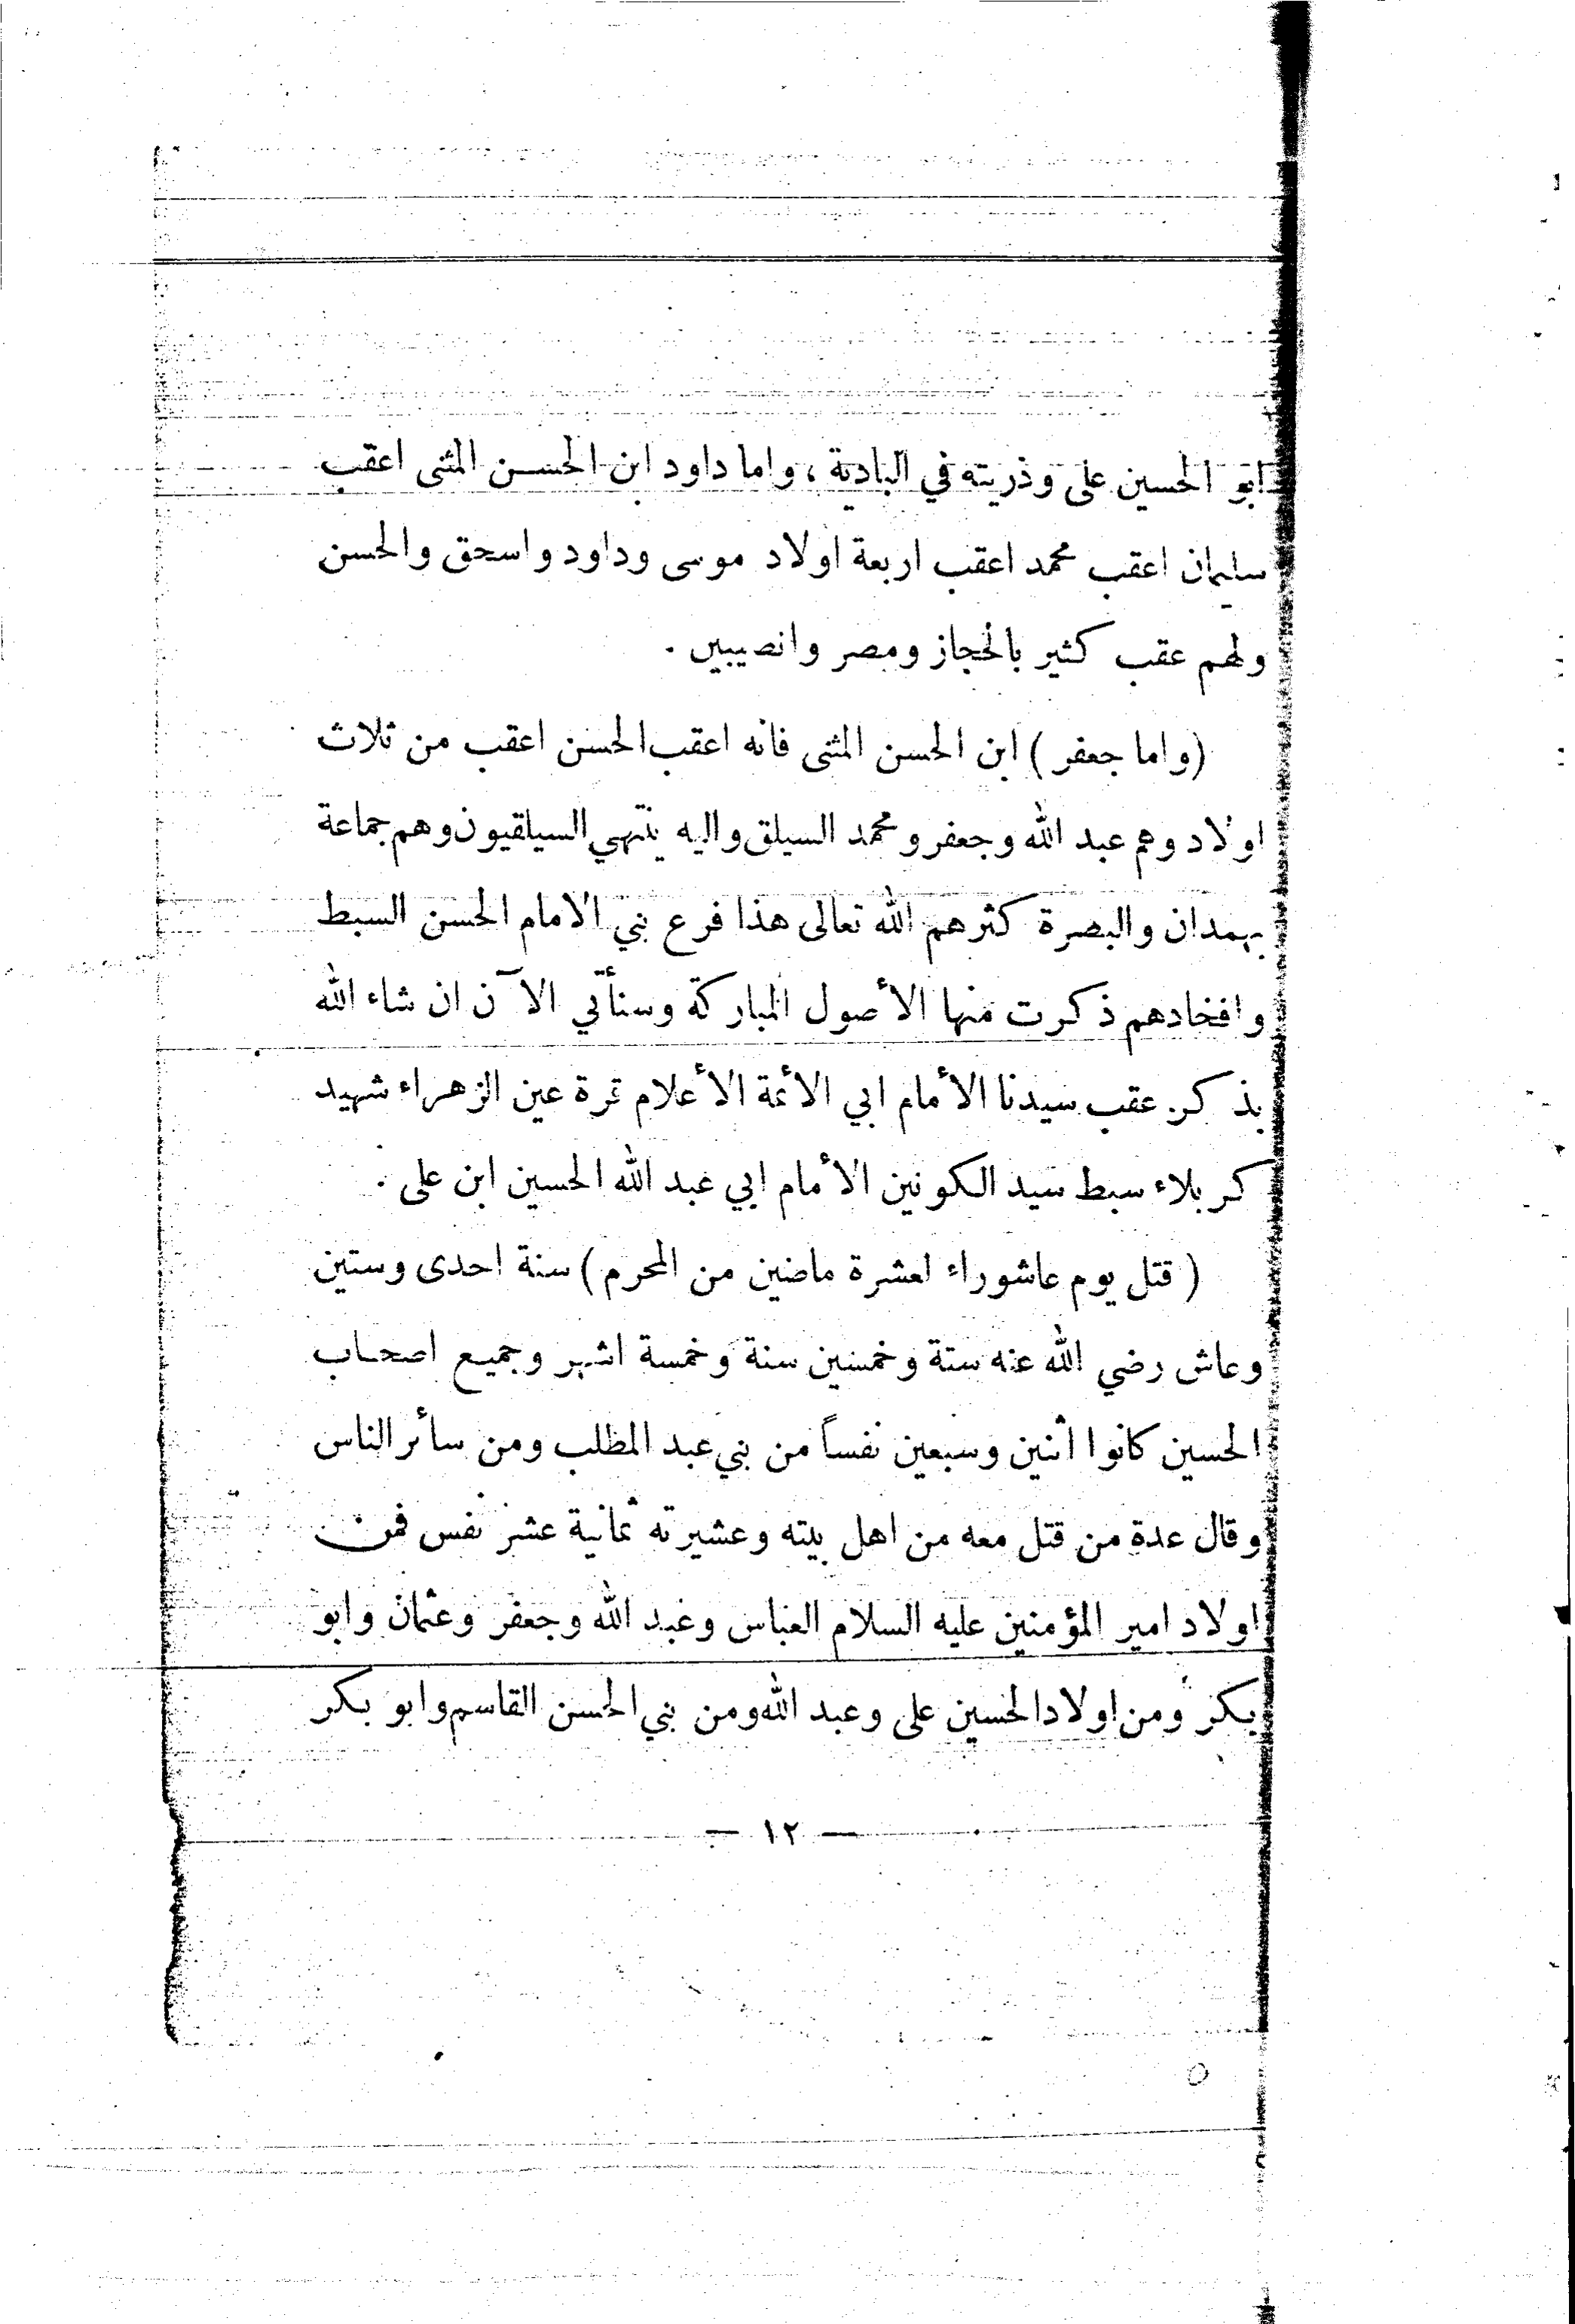 ابو الحسين على وذريته في البادية ، واما داود ابن الحسن المثنى اعقب
سليمان اعقب محمد اعقب اربعة اولاد موسى وداود واسحق والحسن
ولهم عقب كثير بالحجاز ومصر وانصيبين .
(واما جعفر ) ابن الحسن المثنى فانه اعقب الحسن اعقب من ثلاث
اولاد وهم عبد الله وجعفر ومحمد السيلق واليه ينتهي السيلقيون وهم جماعة
بهمدان والبصرة كثرهم الله تعالى هذا فرع بني الامام الحسن السبط
وافخادهم ذكرت منها الأصول المباركة وسنأتي الآن ان شاء الله
بذكر عقب سيدنا الأمام ابي الأئمة الأعلام قرة عين الزهراء شهيد
كربلاء سبط سيد الكونين الأمام ابي عبد الله الحسين ابن على .
( قتل يوم عاشوراء لعشرة ماضين من المحرم ) سنة احدى وستين
وعاش رضي الله عنه ستة وخمسين سنة وخمسة اشهر وجميع اصحاب
الحسين كانوا اثنين وسبعين نفساً من بني عبد المطلب ومن سائر الناس
وقال عدة من قتل معه من اهل بيته وعشيرته ثمانية عشر نفس فمن
اولاد امير المؤمنين عليه السلام العباس وعبد الله وجعفر وعثمان وابو
بكر ومن اولاد الحسين على وعبد الله ومن بني الحسن القاسم وابو بكر
— ١٢ —